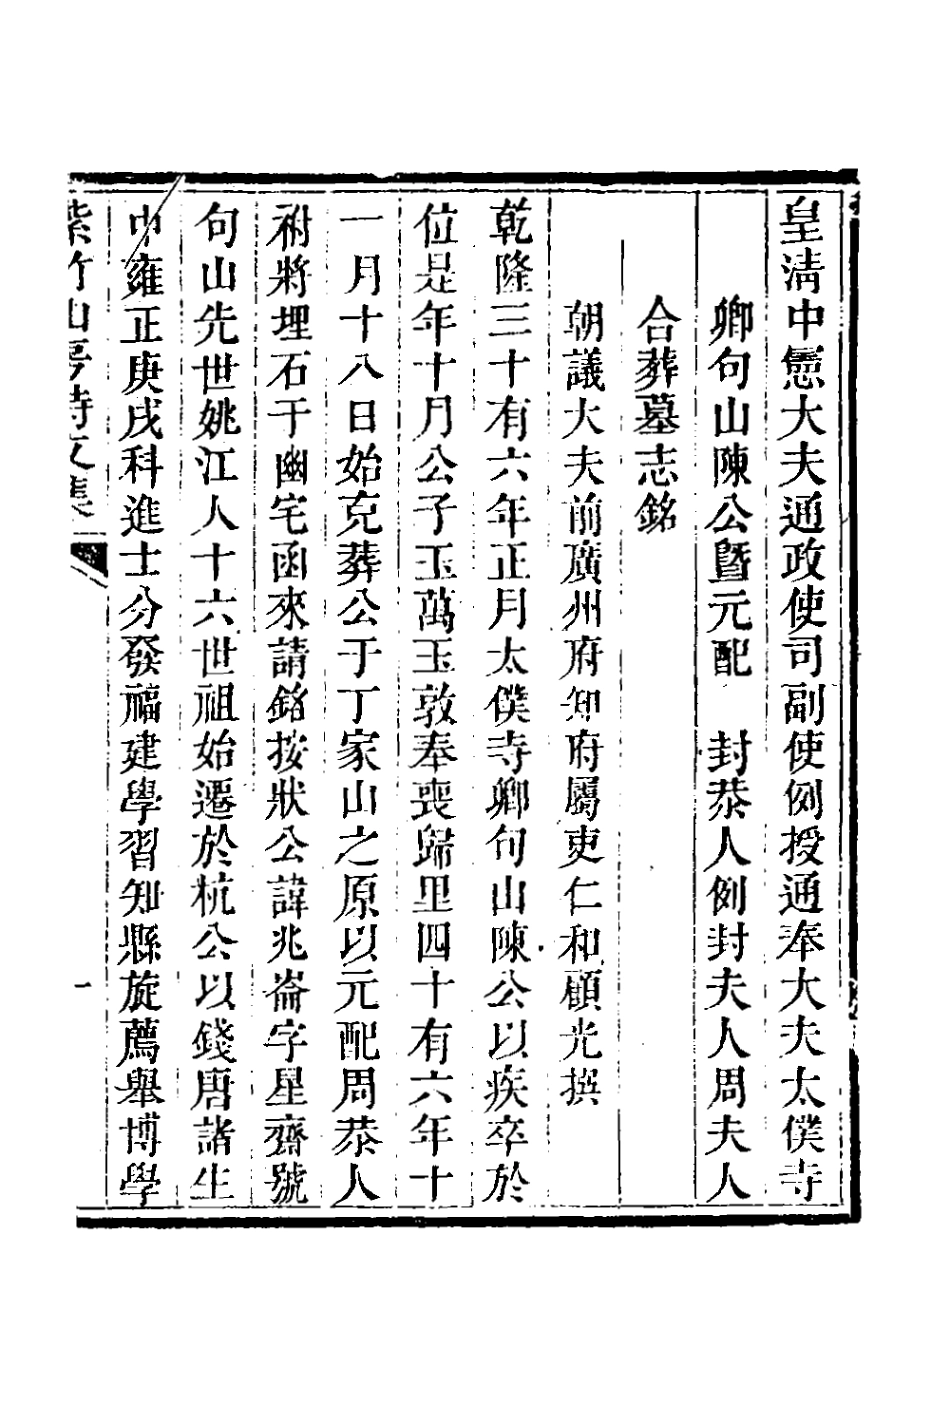 皇淸中憲大夫通政使司副使例授通奉大夫太僕寺
卿句山陳公曁元配　封恭人例封夫人周夫人
合葬墓志銘
朝議大夫前廣州府知府屬吏仁和顧光撰
乾隆三十有六年正月太僕寺卿句山陳公以疾卒於
位是年十月公子玉萬玉敦奉喪歸里四十有六年十
一月十八日始克葬公于丁家山之原以元配周恭人
祔將埋石于幽宅函來請銘按狀公諱兆崙字星齋號
句山先世姚江人十六世祖始遷於杭公以錢唐諸生
中雍正庚戌科進士分發福建學習知縣旋薦舉博學
紫竹山房詩文集
一